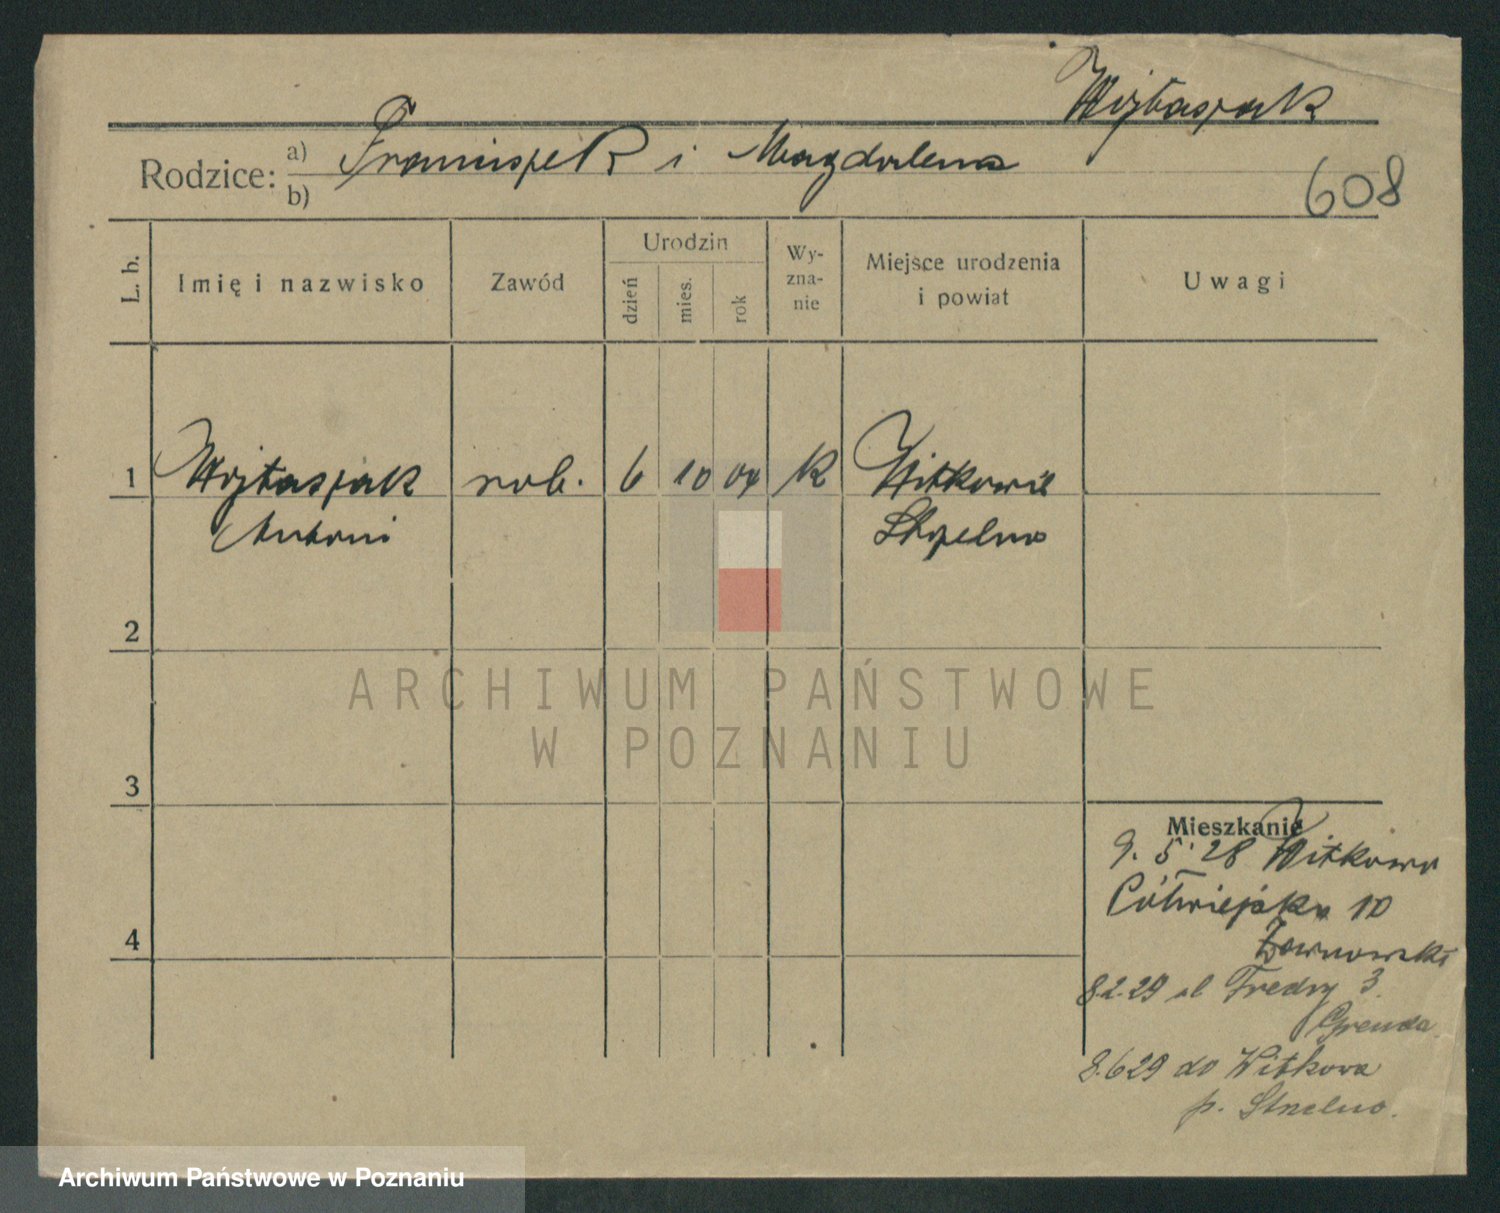 Wojtasiak
Rodzice: a) Franciszek i Magdalena
b)
608
L. b.
Imię i nazwisko
Zawód
Urodzin
dzień
mies.
rok
Wy-
zna-
nie
Miejsce urodzenia
i powiat
Uwagi
1 Wojtasiak rob. 6 10 04 K Witkowie
Antoni Strzelno
2
ARCHIWUM PAŃSTWOWE
W POZNANIU
3
Mieszkanie
9. 5. 28 Witkowo
Półwiejska 10
8.2.29 ul Fredry 3
Grenda
8.6 29 do Witkowa
p. Strzelno.
4
Archiwum Państwowe w Poznaniu